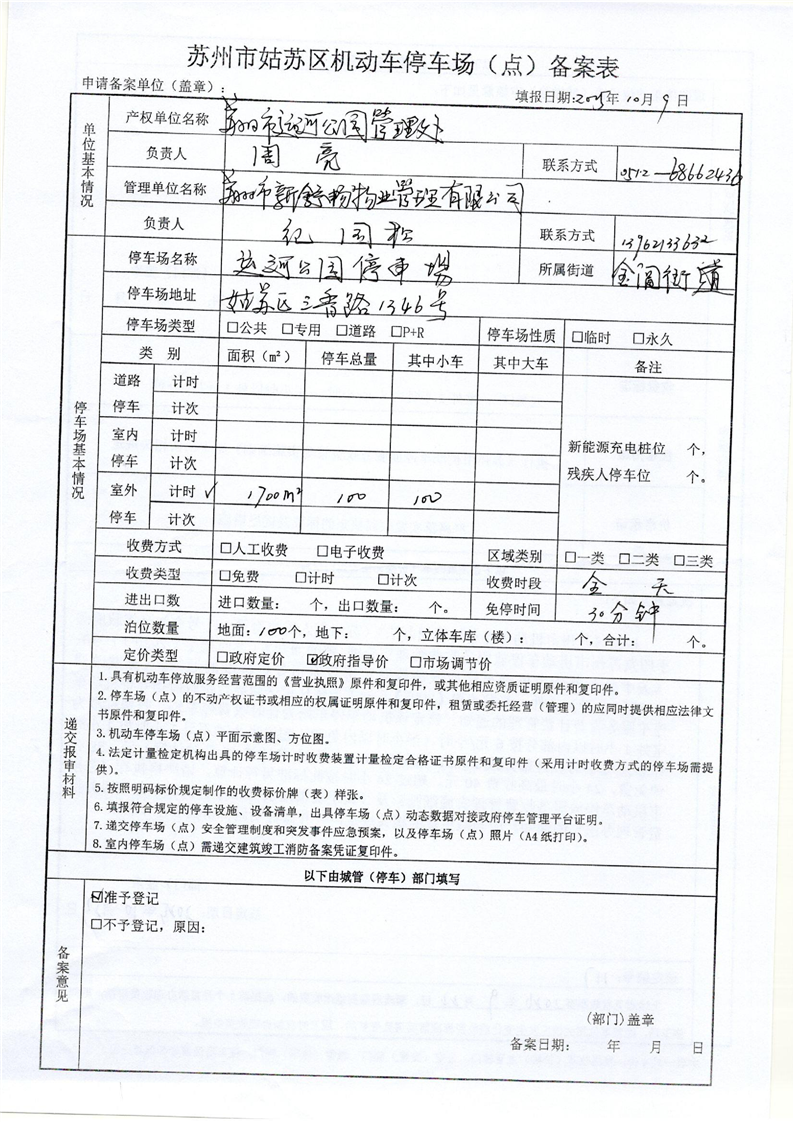 苏州市姑苏区机动车停车场（点）备案表
申请备案单位（盖章）：
填报日期:2025年10月9日
单位基本情况
产权单位名称 苏州市运河公园管理处
负责人 周亮 联系方式 0512-68662436
管理单位名称 苏州市新舒畅物业管理有限公司
负责人 纪国松 联系方式 13962133632
停车场基本情况
停车场名称 运河公园停車場 所属街道 金阊街道
停车场地址 姑苏区三香路1346号
停车场类型 □公共 □专用 □道路 □P+R 停车场性质 □临时 □永久
类 别 面积（m²） 停车总量 其中小车 其中大车 备注
道路停车 计时
计次
室内停车 计时
计次
新能源充电桩位 个，
残疾人停车位 个。
室外停车 计时 ✓ 1700m² 100 100
计次
收费方式 □人工收费 □电子收费 区域类别 □一类 □二类 □三类
收费类型 □免费 □计时 □计次 收费时段 全天
进出口数 进口数量： 个，出口数量： 个。 免停时间 30分钟
泊位数量 地面：100个，地下： 个，立体车库（楼）： 个，合计： 个。
定价类型 □政府定价 ☑政府指导价 □市场调节价
递交报审材料
1.具有机动车停放服务经营范围的《营业执照》原件和复印件，或其他相应资质证明原件和复印件。
2.停车场（点）的不动产权证书或相应的权属证明原件和复印件，租赁或委托经营（管理）的应同时提供相应法律文
书原件和复印件。
3.机动车停车场（点）平面示意图、方位图。
4.法定计量检定机构出具的停车场计时收费装置计量检定合格证书原件和复印件（采用计时收费方式的停车场需提
供）。
5.按照明码标价规定制作的收费标价牌（表）样张。
6.填报符合规定的停车设施、设备清单，出具停车场（点）动态数据对接政府停车管理平台证明。
7.递交停车场（点）安全管理制度和突发事件应急预案，以及停车场（点）照片（A4纸打印）。
8.室内停车场（点）需递交建筑竣工消防备案凭证复印件。
以下由城管（停车）部门填写
备案意见
☑准予登记
□不予登记，原因：
(部门)盖章
备案日期： 年 月 日